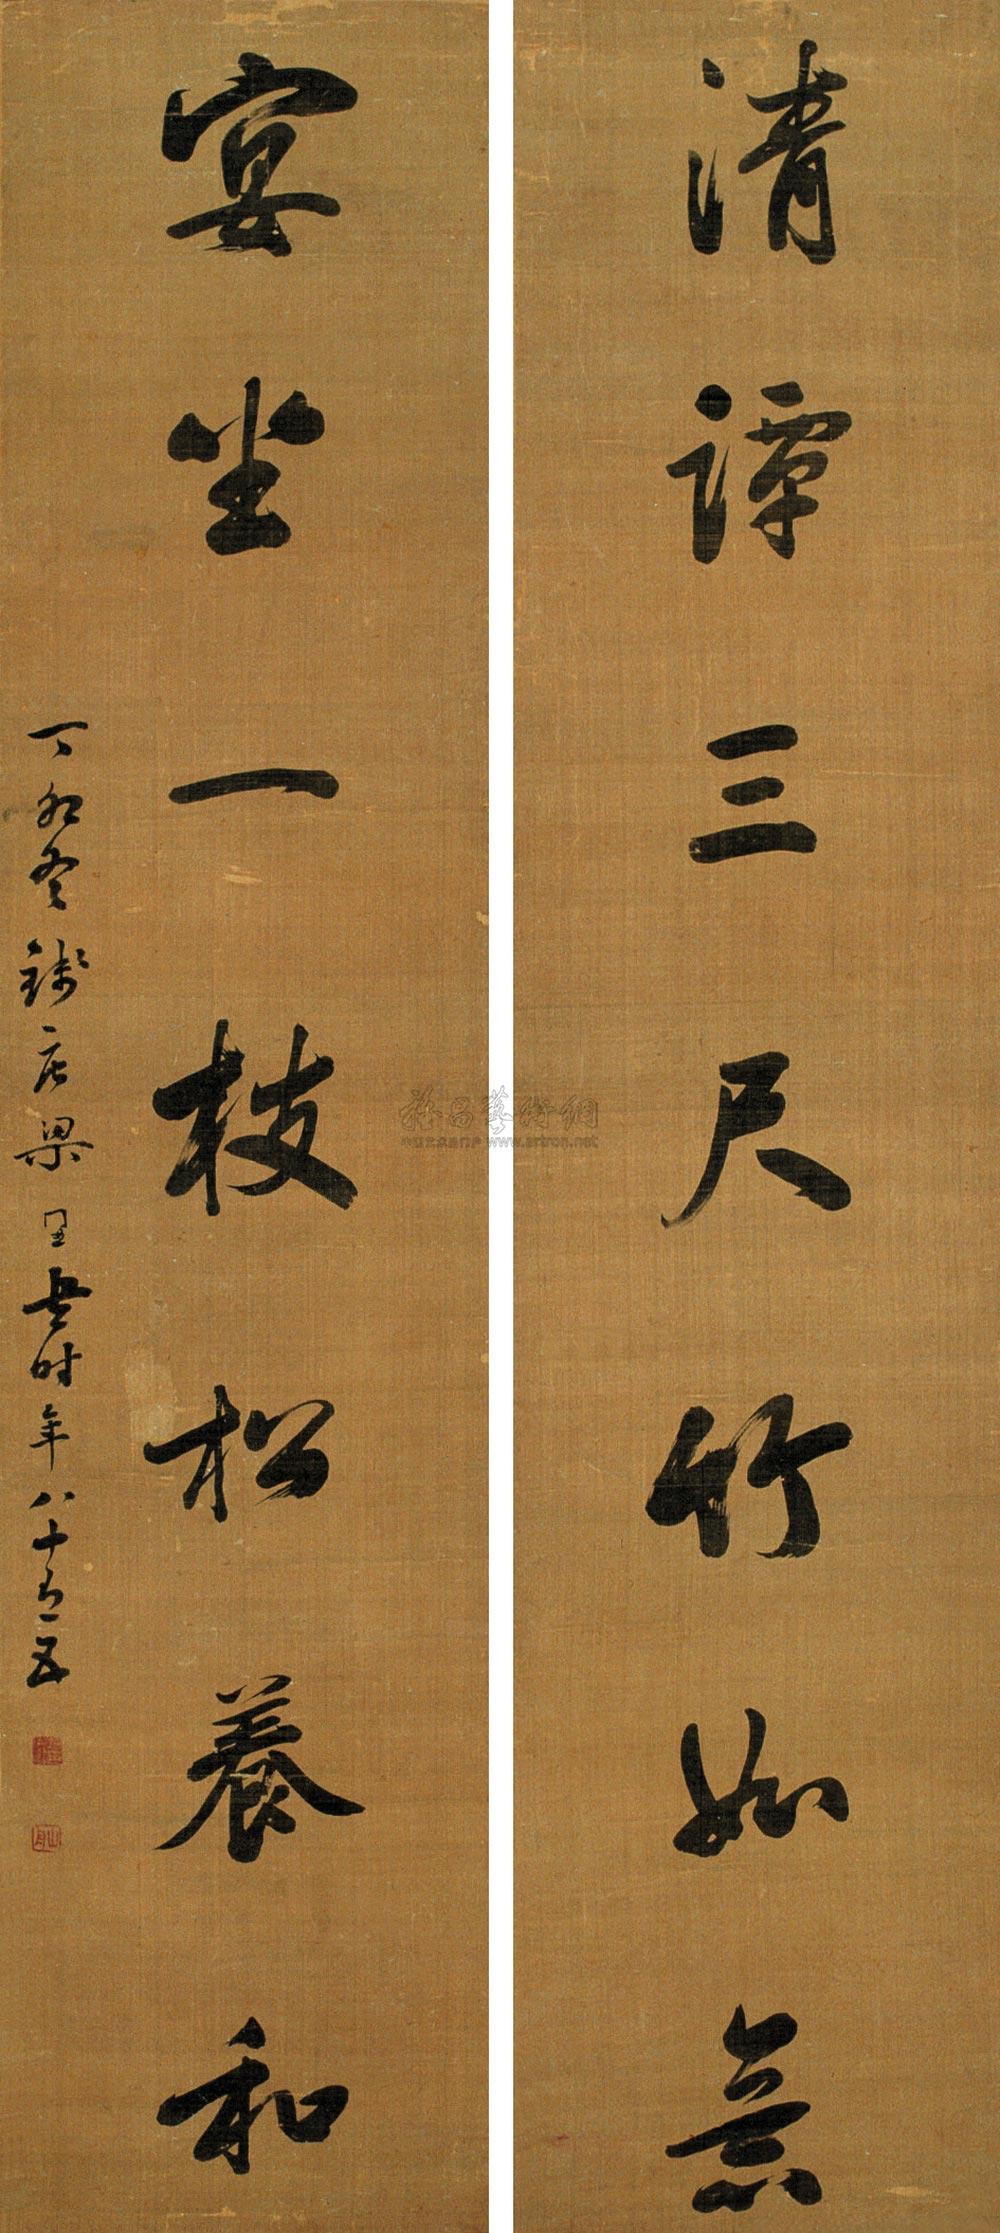 清譚三尺竹如意
宴坐一枝松養和
丁卯冬錢唐梁同書時年八十有五
雅昌藝術網
www.artron.net